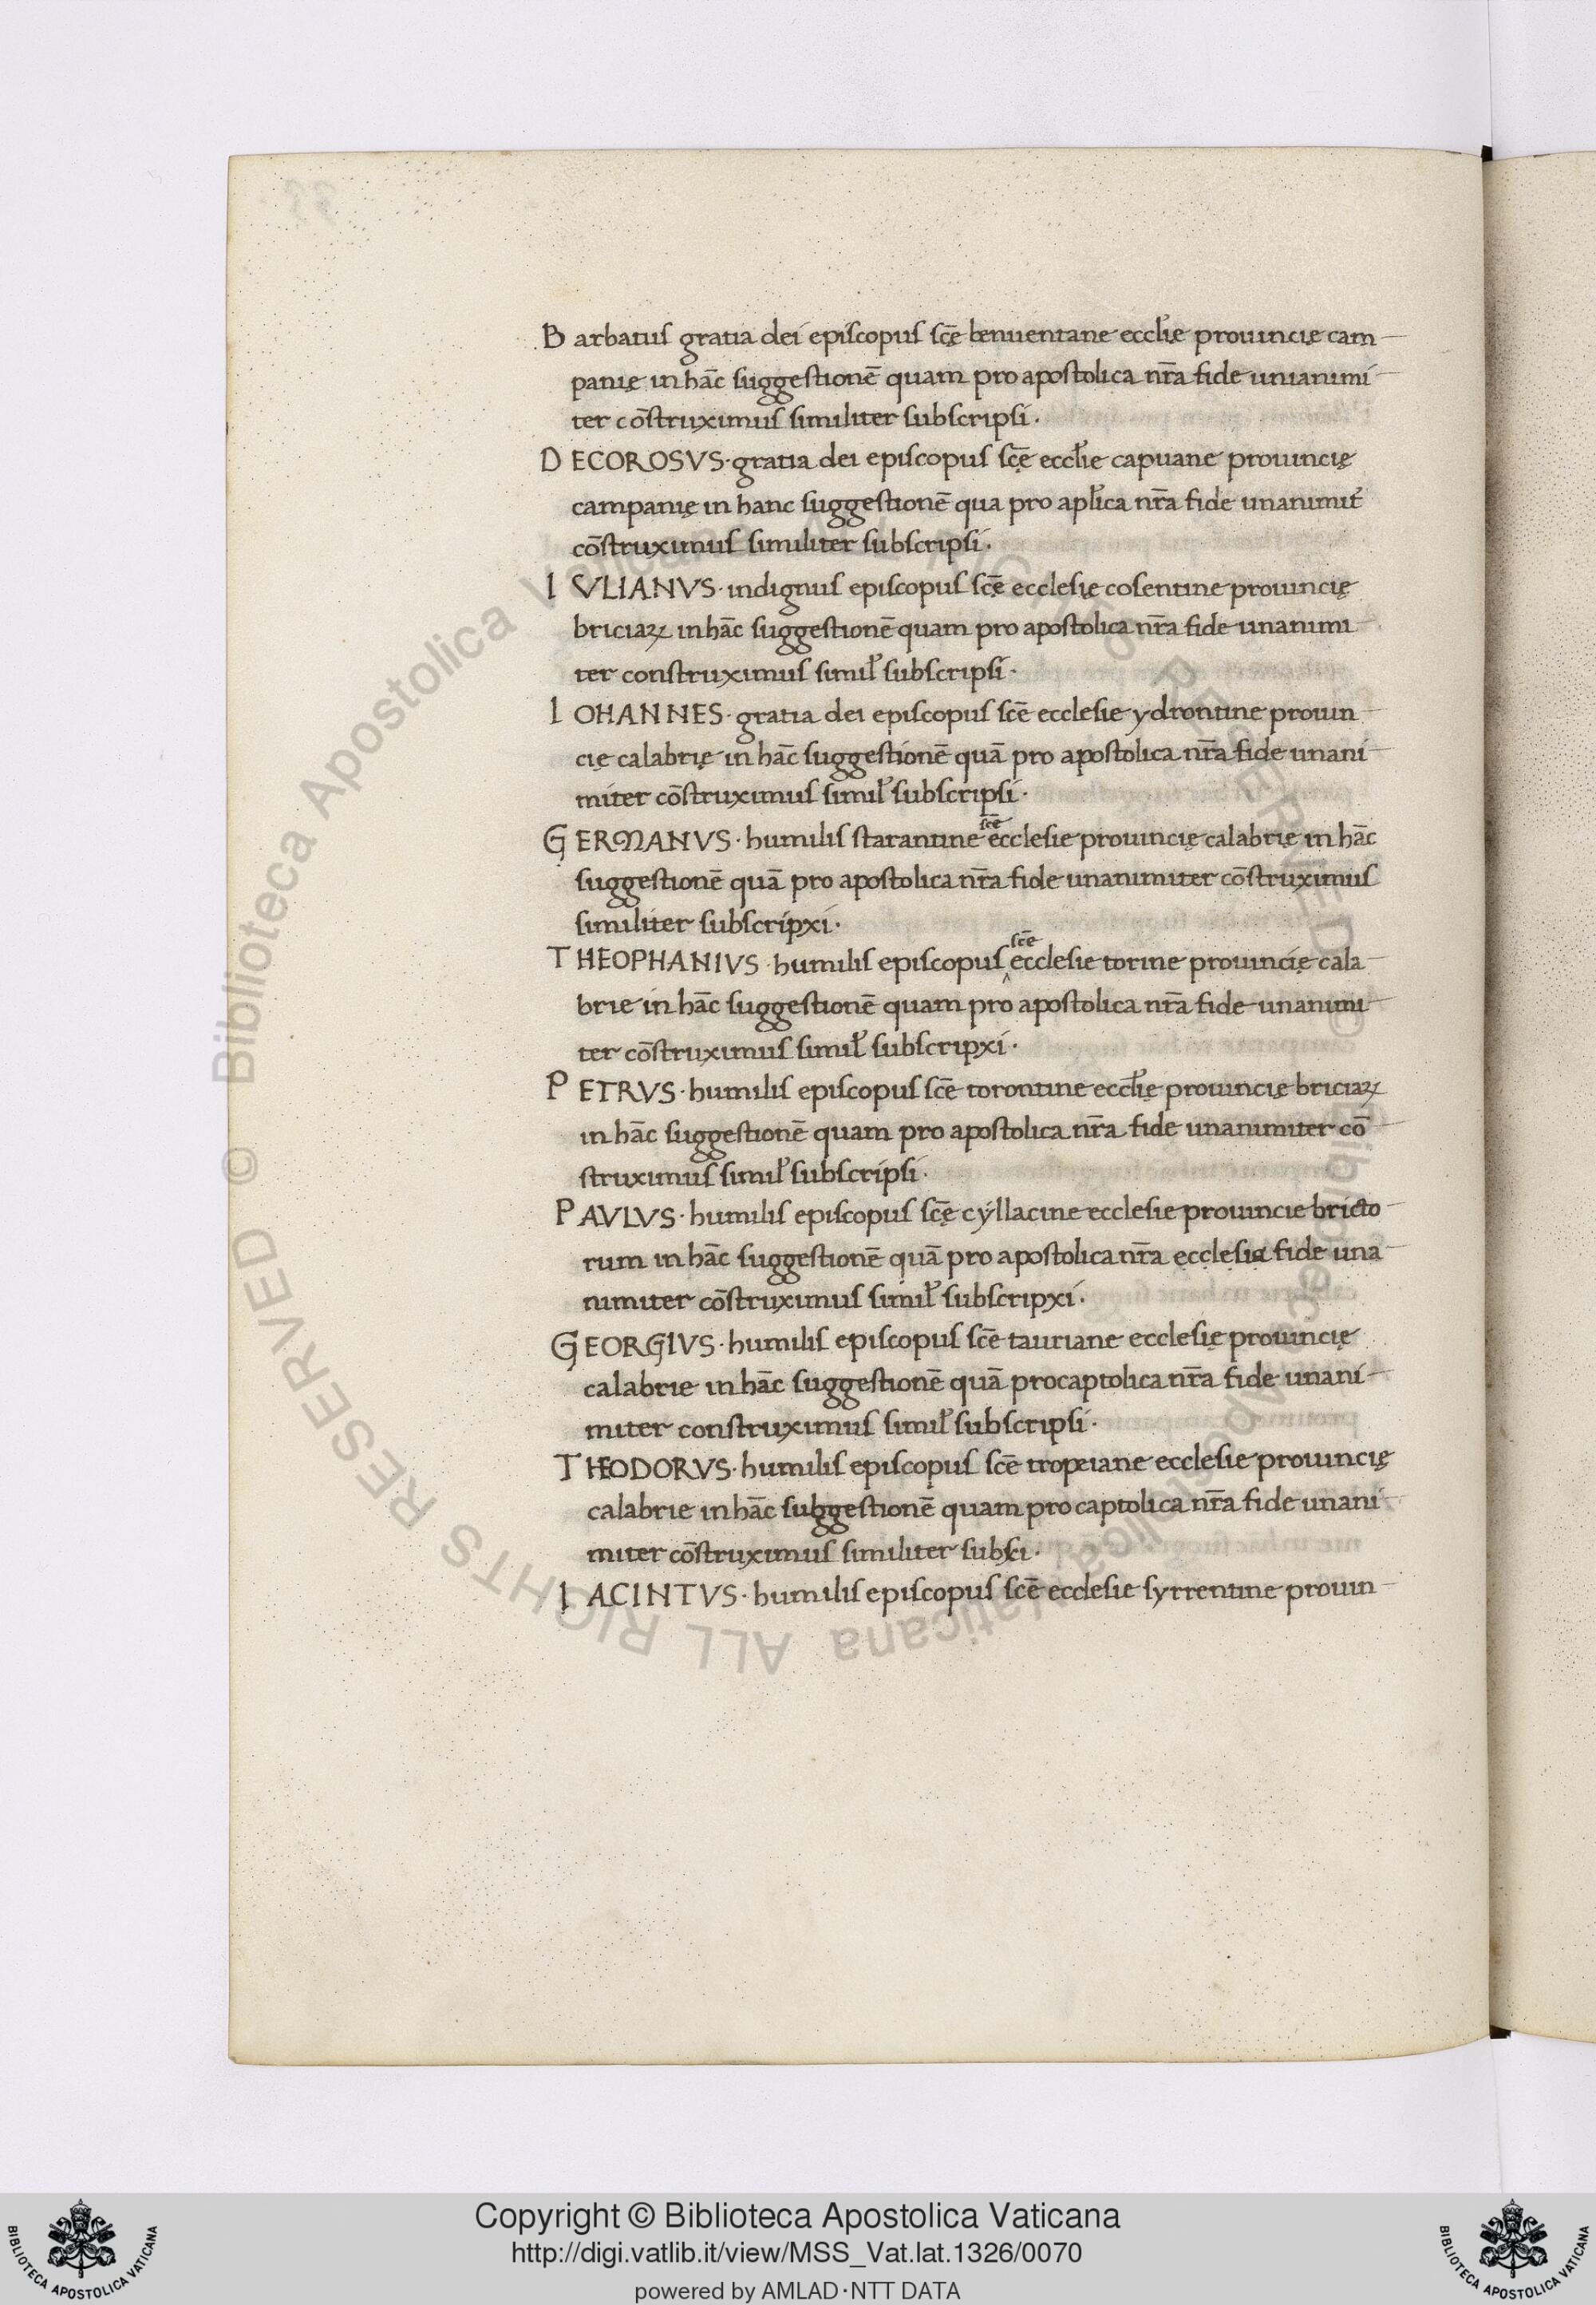 Barbatus gratia dei episcopus sc̄ę benuentane eccl̄ię prouincię cam
panię in hāc suggestionē quam pro apostolica nr̄a fide unianimi
ter cōstruximus similiter subscripsi·
DECOROSVS· gratia dei episcopus sc̄ę eccl̄ie capuane prouincię
campanię in hanc suggestionē qua pro apl̄ica nr̄a fide unanimit̄
cōstruximus similiter subscripsi·
IVLIANVS· indignus episcopus sc̄ę ecclesię cosentine prouincię
briciaꝝ in hāc suggestionē quam pro apostolica nr̄a fide unanimi
ter construximus simil̄ subscripsi·
IOHANNES· gratia dei episcopus sc̄e ecclesie ydrontine prouin
cię calabrię in hāc suggestionē quā pro apostolica nr̄a fide unani
miter cōstruximus simil̄ subscripsi·
GERMANVS· humilis starantine sc̄e ecclesie prouincię calabrię in hāc
suggestionē quā pro apostolica nr̄a fide unanimiter cōstruximus
similiter subscripxi·
THEOPHANIVS· humilis episcopus sc̄e ecclesie torine prouincię cala
brie in hāc suggestionē quam pro apostolica nr̄a fide unanimi
ter cōstruximus simil̄ subscripxi·
PETRVS· humilis episcopus sc̄e torontine eccl̄ię prouincię briciaꝝ
in hāc suggestionē quam pro apostolica nr̄a fide unanimiter cō
struximus simil̄ subscripsi·
PAVLVS· humilis episcopus sc̄ę cyllacine ecclesie prouincie bricto
rum in hāc suggestionē quā pro apostolica nr̄a ecclesia fide una
nimiter cōstruximus simil̄ subscripxi·
GEORGIVS· humilis episcopus sc̄e tauriane ecclesię prouincię
calabrie in hāc suggestionē quā procaptolica nr̄a fide unani
miter construximus simil̄ subscripsi·
THEODORVS· humilis episcopus sc̄e tropeiane ecclesie prouincię
calabrie in hāc subggestionē quam pro captolica nr̄a fide unani
miter cōstruximus similiter subsci·
IACINTVS· humilis episcopus sc̄e ecclesie syrrentine prouin
© Biblioteca Apostolica Vaticana ALL RIGHTS RESERVED
BIBLIOTECA APOSTOLICA VATICANA
Copyright © Biblioteca Apostolica Vaticana
http://digi.vatlib.it/view/MSS_Vat.lat.1326/0070
powered by AMLAD·NTT DATA
BIBLIOTECA APOSTOLICA VATICANA